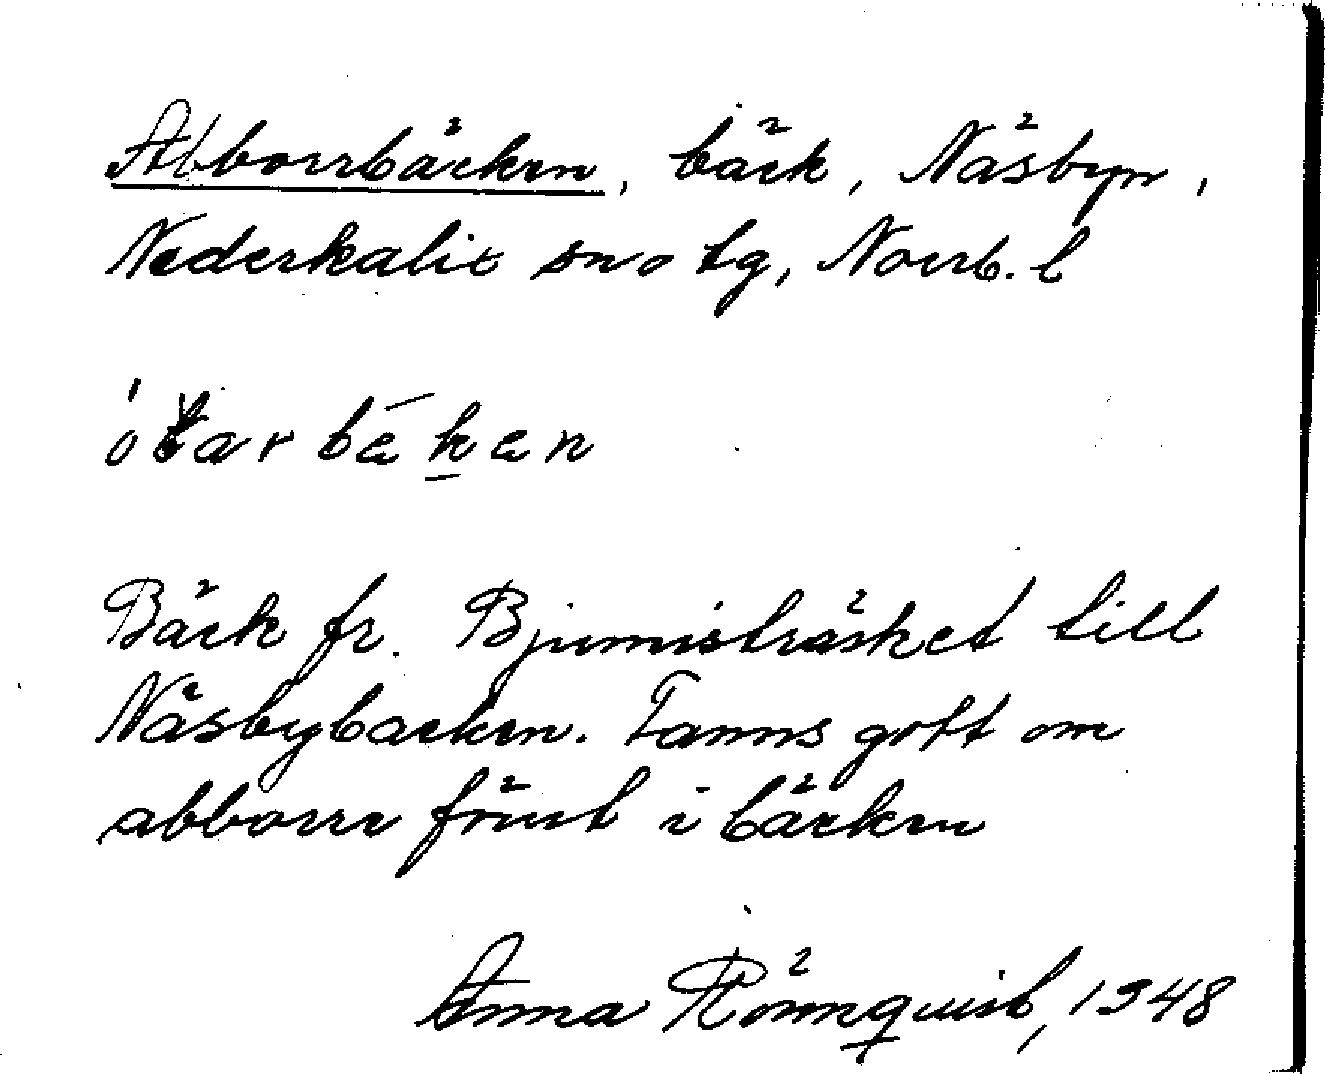 Abborrbäcken, bäck, Näsbyn,
Nederkalix sn o tg, Norrb. l
Bäck fr. Bjumisträsket till
Näsbybäcken. Fanns gott om
abborre förut i bäcken
Anna Rönnquist, 1948